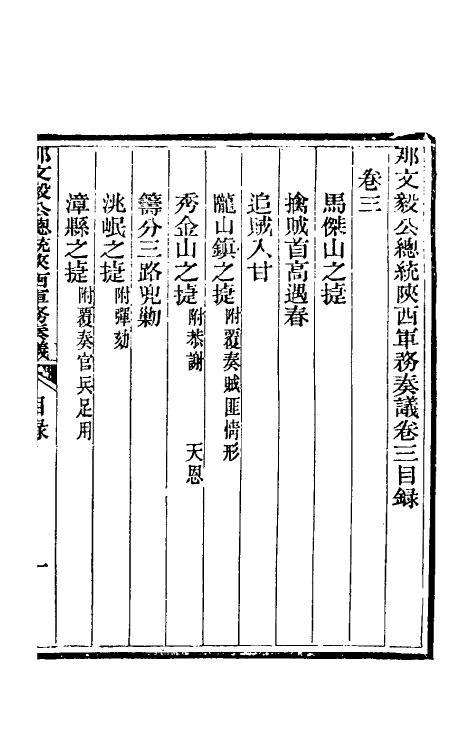 那文毅公總統陝西軍務奏議卷三目録
卷三
馬傑山之捷
擒賊首高遇春
追賊入甘
隴山鎮之捷附覆奏賊匪情形
秀金山之捷附恭謝 天恩
籌分三路兜勦
洮岷之捷附彈劾
漳縣之捷附覆奏官兵足用
那文毅公總統陝西軍務奏議 目録 一